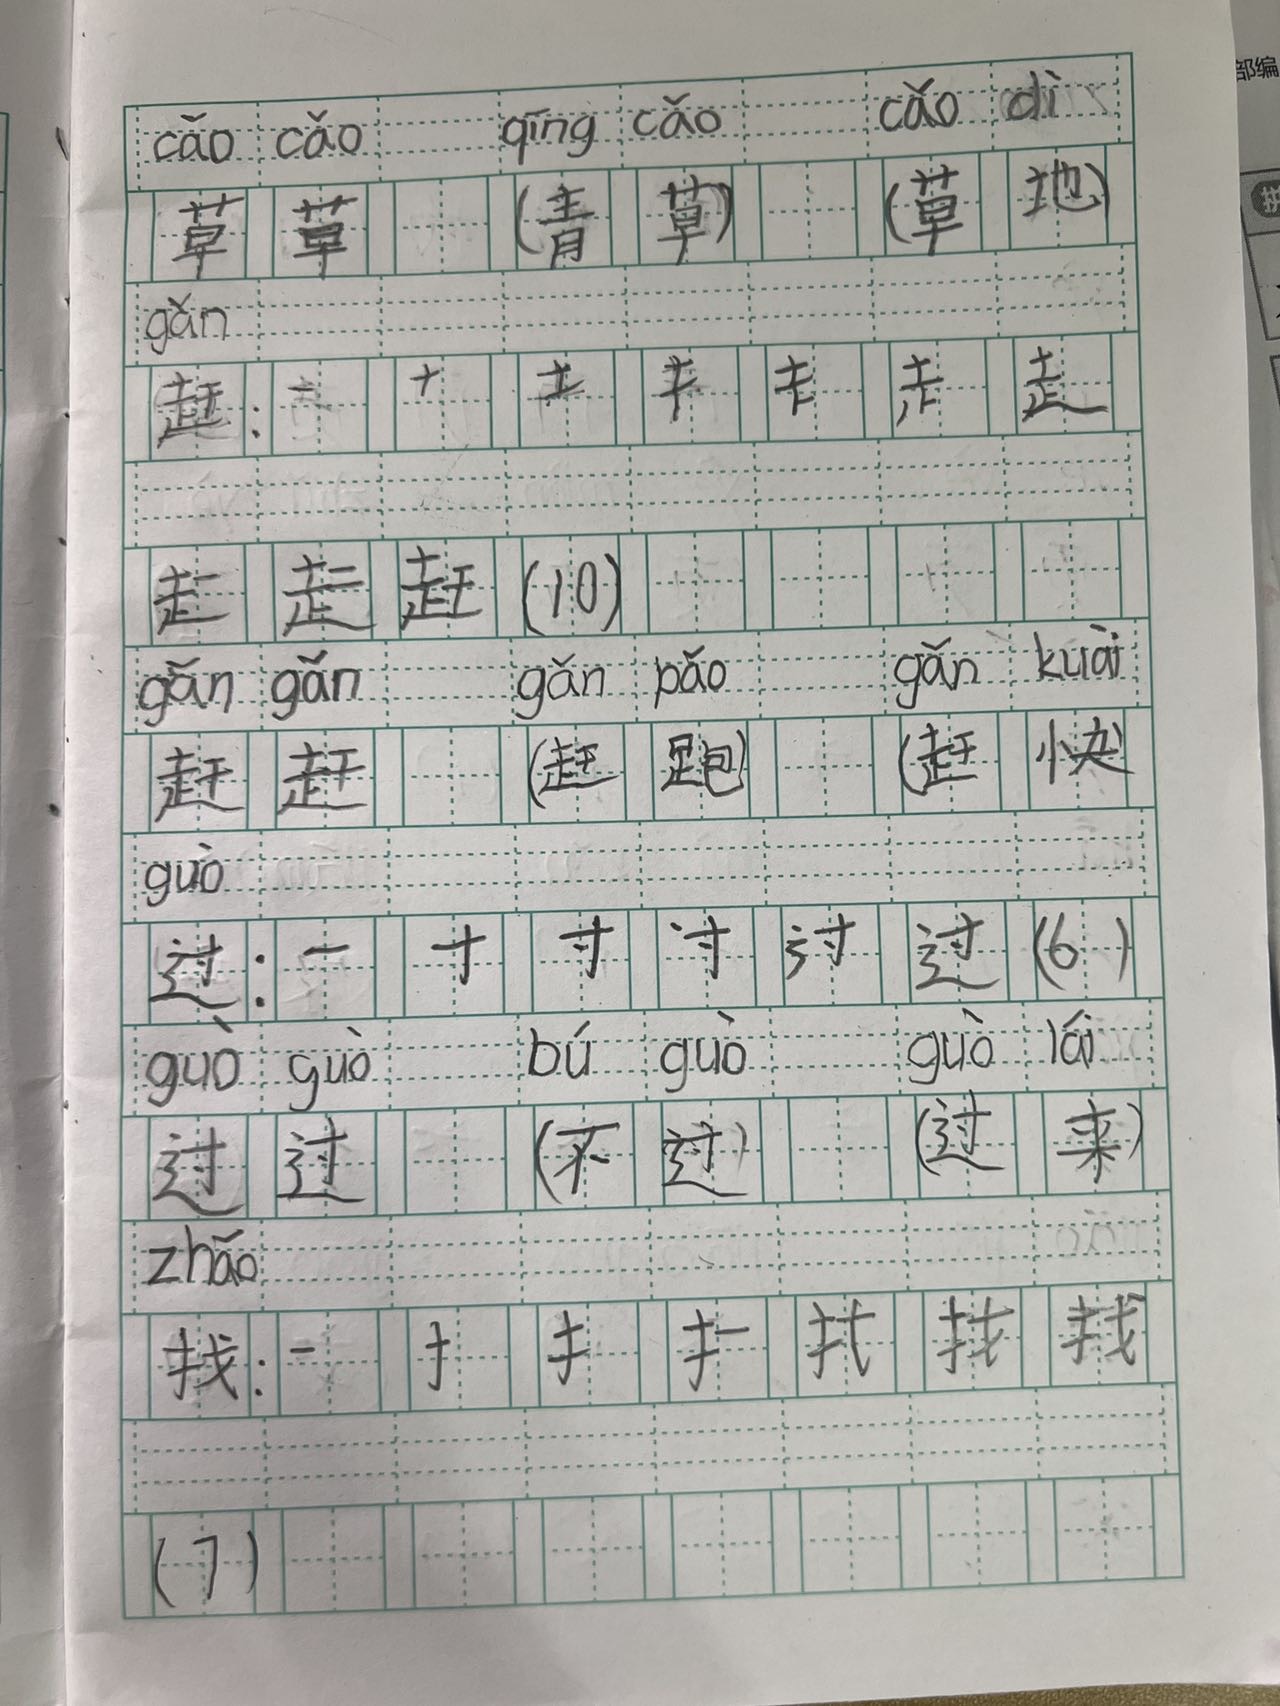 部编
cǎo cǎo qīng cǎo cǎo dì
草 草 (青 草) (草 地)
gǎn
赶: 一 十 土 キ 走
走 赶 (10)
gǎn gǎn gǎn pǎo gǎn kuài
赶 赶 (赶 跑) (赶 快
guò
过: 一 寸 寸 讨 过 (6)
guò guò bú guò guò lái
过 过 (不 过) (过 来)
zhǎo
找: 一 扌 扌 找
(7)